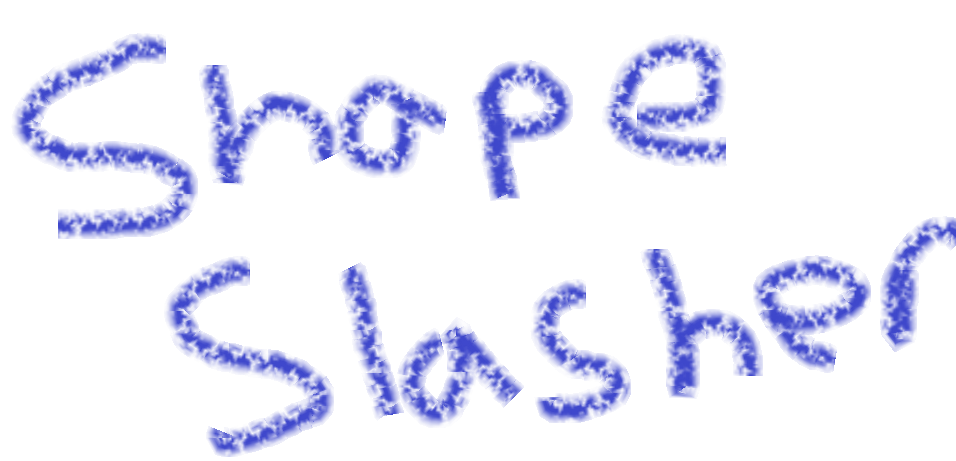 Shape
Slasher